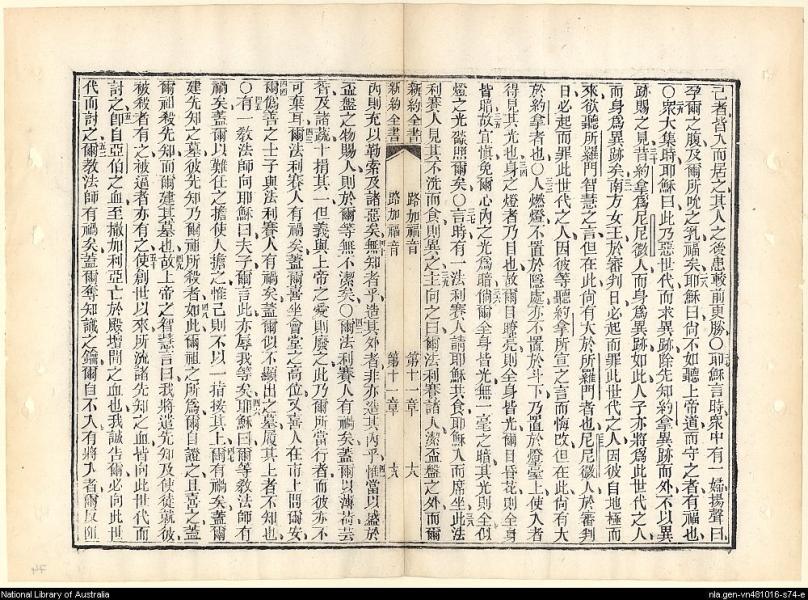 己者皆入而居之其人之後患較前更勝○耶穌言時衆中有一婦揚聲曰
孕爾之腹及爾所吮之乳福矣耶穌曰尙不如聽上帝道而守之者有福也
○衆大集時耶穌曰此乃惡世代而求異跡除先知約拿異跡而外不以異
跡賜之見昔約拿爲尼尼微人而身爲異跡如此人子亦將爲此世代之人
而身爲異跡矣南方女王於審判日必起而罪此世代之人因彼自地極而
來欲聽所羅門智慧之言但在此尙有大於所羅門者也尼尼微人於審判
日必起而罪此世代之人因彼等聽約拿所宣之言而悔改但在此尙有大
於約拿者也○人燃燈不置於隱處亦不置於斗下乃置於燈臺上使入者
得見其光也身之燈者乃目也故爾目瞭亮則全身皆光爾目昏花則全身
皆暗故宜愼免爾心內之光爲暗倘爾全身皆光無一毫之暗其光則全似
燈之光燄照爾矣○言時有一法利賽人請耶穌共食耶穌入而席坐此法
利賽人見其不洗而食則異之主向之曰爾法利賽諸人潔盃盤之外而爾
新約全書 路加福音 第十一章 大
新約全書 路加福音 第十一章 大
內則充以勒索及諸惡矣無知者乎造其外者非亦造其內乎惟當以盛於
盃盤之物賜人則於爾等無不潔矣○爾法利賽人有禍矣蓋爾以薄荷芸
香及諸蔬十捐其一但義與上帝之愛則廢之此乃爾所當行者而彼亦不
可棄耳爾法利賽人有禍矣蓋爾喜坐會堂之高位又喜人在市上問爾安
爾僞善之士子與法利賽人有禍矣蓋爾似不顯出之墓履其上者不知也
○有一敎法師向耶穌曰夫子爾言此亦辱我等矣耶穌曰爾等敎法師有
禍矣蓋爾以難任之擔使人擔之惟己則不以一指按其上爾有禍矣蓋爾
建先知之墓彼先知乃爾祖所殺者如此爾祖之所爲爾自證之且喜之蓋
爾祖殺先知而爾建其墓也故上帝之智慧言曰我將遣先知及使徒就彼
被殺者有之被逼者亦有之使創世以來所流諸先知之血皆向此世代而
討之卽自亞伯之血至撒加利亞亡於殿壇間之血也我誠告爾必向此世
代而討之爾敎法師有禍矣蓋爾奪知識之鑰爾自不入有將入者爾反阻
National Library of Australia
nla.gen-vn481016-s74-e